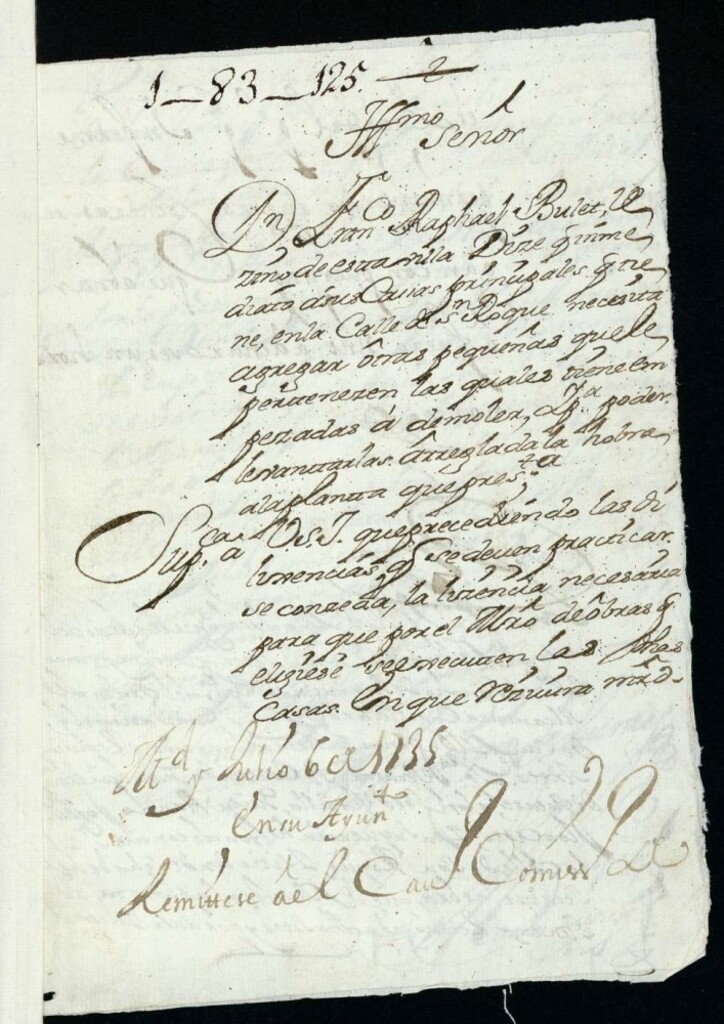 1-83-125. 2
Illmo Señor
Dn Franco Raphael Bulet, Ve
zino de esta villa Dize q ínme
diato a sus Casas prinzipales q tie
ne, en la Calle de Sn Roque nezesita
agregar ôtras pequeñas que le
pertenezen las quales tiene em
pezadas â demoler, y pa poder
levantarlas ârreglada la hobra
a la planta que presta
Supca a V.S.I. que prezediendo las di
lixencias, q se deven practicar.
se conzeda, la lizenzia nezesaria
para que por el Mro de ôbras q
elijiese se executen las dhas
Casas. En que rezivira mrd.
Md y Julio 6 de 1735
En su Ayunto
Remitese a el Cavo Comisso